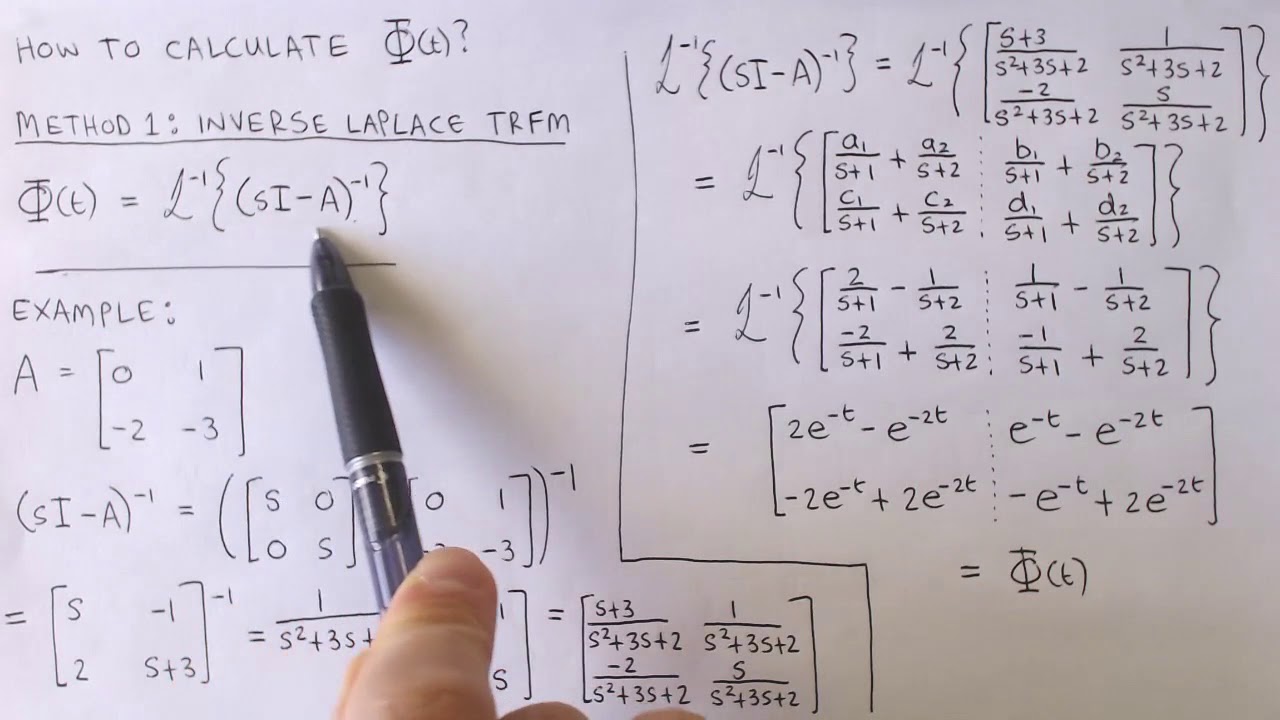 HOW TO CALCULATE Φ(t)?
METHOD 1: INVERSE LAPLACE TRFM
Φ(t) = ℒ⁻¹{(sI-A)⁻¹}
EXAMPLE:
A = [0 1
-2 -3]
(sI-A)⁻¹ = ([s 0 [0 1])⁻¹
0 s -3
= [s -1]⁻¹ = 1/(s²+3s+ 1] = [(s+3)/(s²+3s+2) 1/(s²+3s+2)
2 s+3 s -2/(s²+3s+2) s/(s²+3s+2)]
ℒ⁻¹{(sI-A)⁻¹} = ℒ⁻¹{[(s+3)/(s²+3s+2) 1/(s²+3s+2)
-2/(s²+3s+2) s/(s²+3s+2)]}
= ℒ⁻¹{[a₁/(s+1) + a₂/(s+2) b₁/(s+1) + b₂/(s+2)
c₁/(s+1) + c₂/(s+2) d₁/(s+1) + d₂/(s+2)]}
= ℒ⁻¹{[2/(s+1) - 1/(s+2) 1/(s+1) - 1/(s+2)
-2/(s+1) + 2/(s+2) -1/(s+1) + 2/(s+2)]}
= [2e⁻ᵗ - e⁻²ᵗ e⁻ᵗ - e⁻²ᵗ
-2e⁻ᵗ + 2e⁻²ᵗ -e⁻ᵗ + 2e⁻²ᵗ]
= Φ(t)